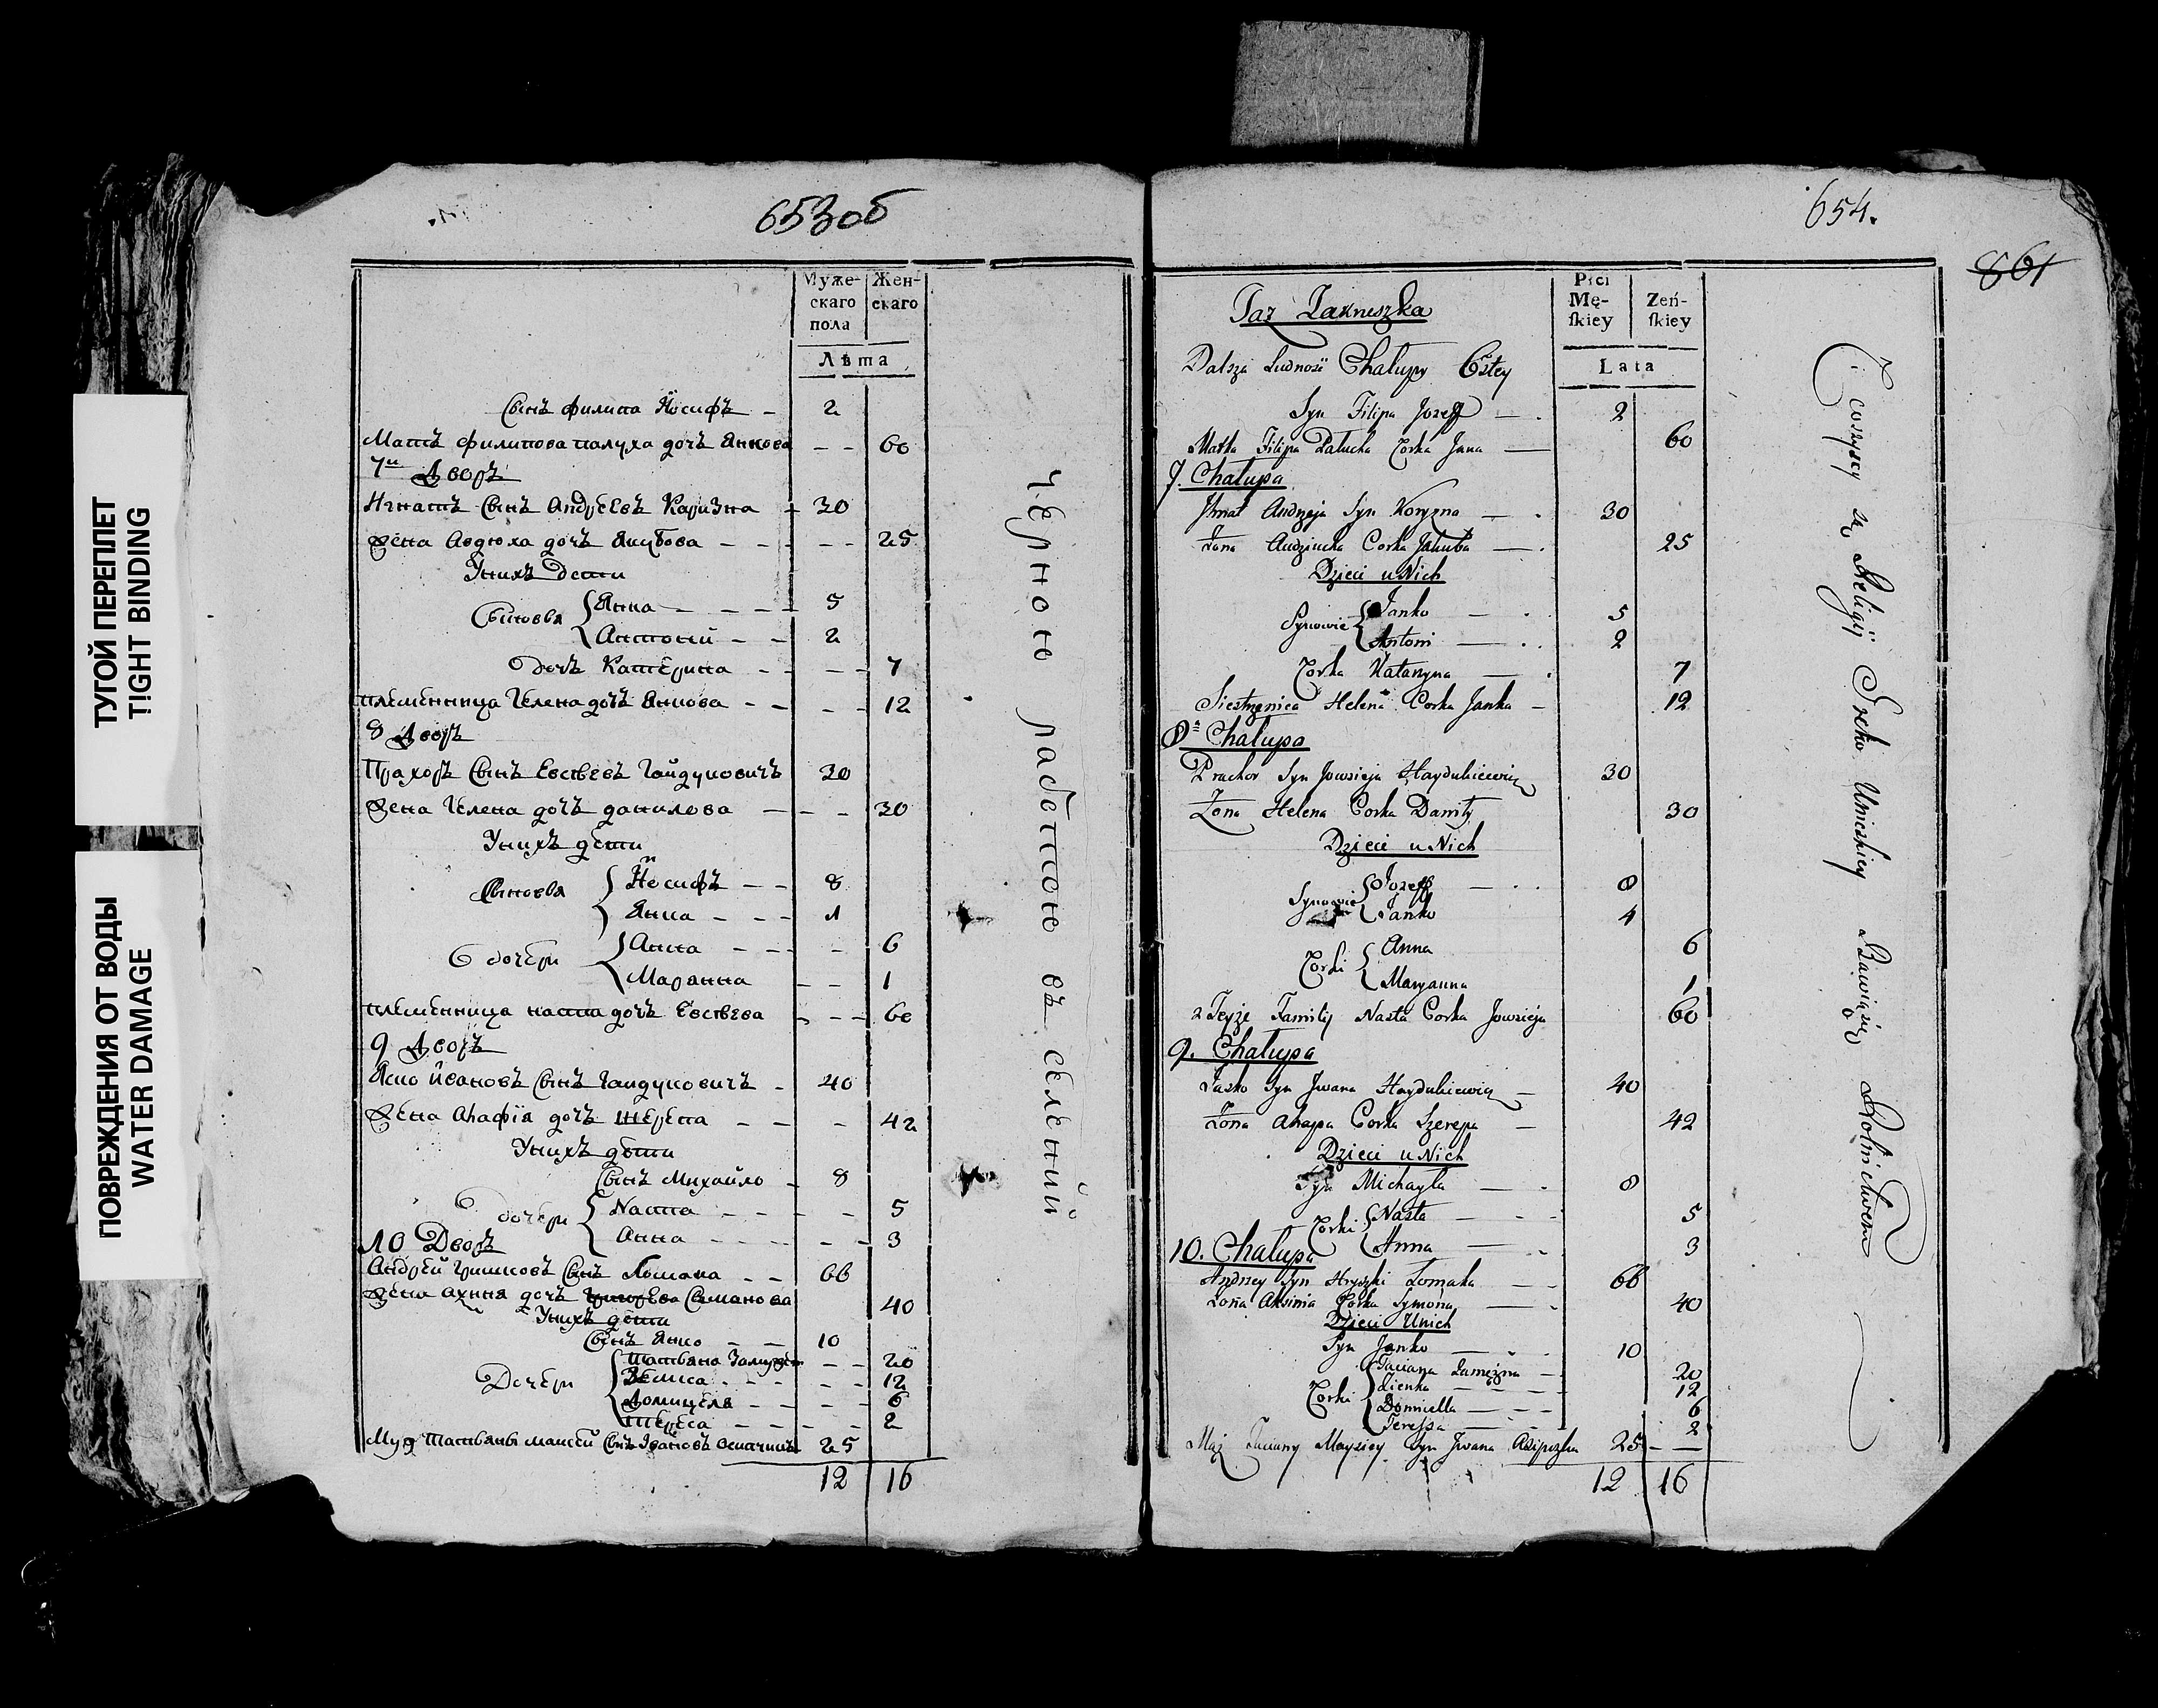 ТУГОЙ ПЕРЕПЛЕТ
TIGHT BINDING
ПОВРЕЖДЕНИЯ ОТ ВОДЫ
WATER DAMAGE
653об
Муже- Жен-
скаго скаго
пола
Лѣта
Сынъ Филипа Иосифъ — 2
Мать Филипова палуха дочъ Янкова — — 60
7й Дворъ
Игнатъ Сынъ Андреевъ Каризна — 30
Жена Авдюха дочъ Якубова — — 25
Унихъ дети
Сыновья Янка — 5
Антоний — 2
дочъ Катерина — — 7
племенница Гелена дочъ Янкова — — 12
8 Дворъ
Прахоръ Сынъ Евсѣевъ Гайдуковичъ 30
Жена Гелена дочъ данилова — — 30
Унихъ дѣти
Сыновья Иосифъ — 8
Янка — 4
дочери Анна — — 6
Марянна — — 1
племенница наста дочъ Евсѣева — — 60
9 Дворъ
Яско Ивановъ Сынъ Гаидуковичъ — 40
Жена Агафія дочъ шерепа — — 42
Унихъ дѣти
Сынъ Михайло — 8
дочери Наста — — 5
Анна — — 3
10 Дворъ
Андрей Гришковъ Сынъ Ломака — 66
Жена Ахиня дочъ Григорева Симанова 40
Унихъ дѣти
Сынъ Янко — 10
Дочери Татьяна Замужем — — 20
Зенка — — 12
Домицеля — — 6
Тереса — — 2
Муж Татьяны Маисей Сынъ Ивановъ 25
12 16
черною работою въ селений
654.
861
Płci
Mę- Żeń-
skiey skiey
Lata
Taż
Dalsza Ludność Chałupy 6stey
Syn Filipa Jozeff — 2
Matka Filipa Palucha Corka Jana — 60
7. Chałupa
Ihnat Andrzeja Syn Koryzna — 30
Żona Audziucha Corka Jakuba — 25
Dzieci u Nich
Synowie Janko — 5
Antoni — 2
Corka Katarzyna — 7
Siestrzenica Helena Corka Janka — 12
8a Chałupa
Prachor Syn Jowsieja Haydukiewicz 30
Żona Helena Corka Daniły 30
Dzieci u Nich
Synowie Jozeff — 8
Janko 4
Corki Anna 6
Maryanna 1
z Teyże Familij Nasta Corka Jowsieja 60
9. Chałupa
Jasko Syn Jwana Haydukiewicz — 40
Żona Ahapa Corka Szerepa — 42
Dzieci u Nich
Syn Michayła — 8
Corki Nasta — 5
Anna — 3
10. Chałupa
Andrzey Syn Hryszki Łomaka — 66
Żona Aksinia Corka Symona — 40
Dzieci Unich
Syn Janko — 10
Corki Taciana Zamężna — 20
Zienka — 12
Domicella — 6
Teressa — 2
Mąż Taciany Moysiey Syn Jwana 25 —
12 16
Ci wszyscy są Religij Grzeko Unickiey Bawią się Rolnictwem